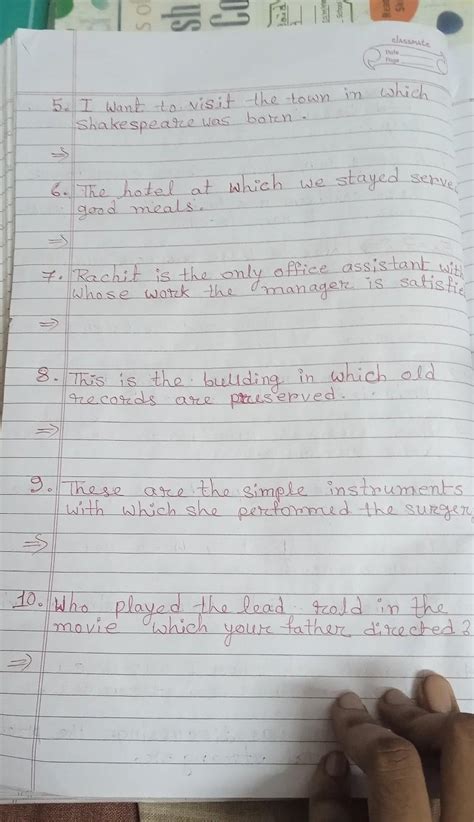 classmate
Date
Page
5. I want to visit the town in which
Shakespeare was born.
⇒
6. The hotel at which we stayed serve
good meals.
⇒
7. Rachit is the only office assistant wit
whose work the manager is satisfie
⇒
8. This is the building in which old
records are preserved.
⇒
9. These are the simple instruments
with which she performed the surger
⇒
10. Who played the lead rold in the
movie which your father directed?
⇒